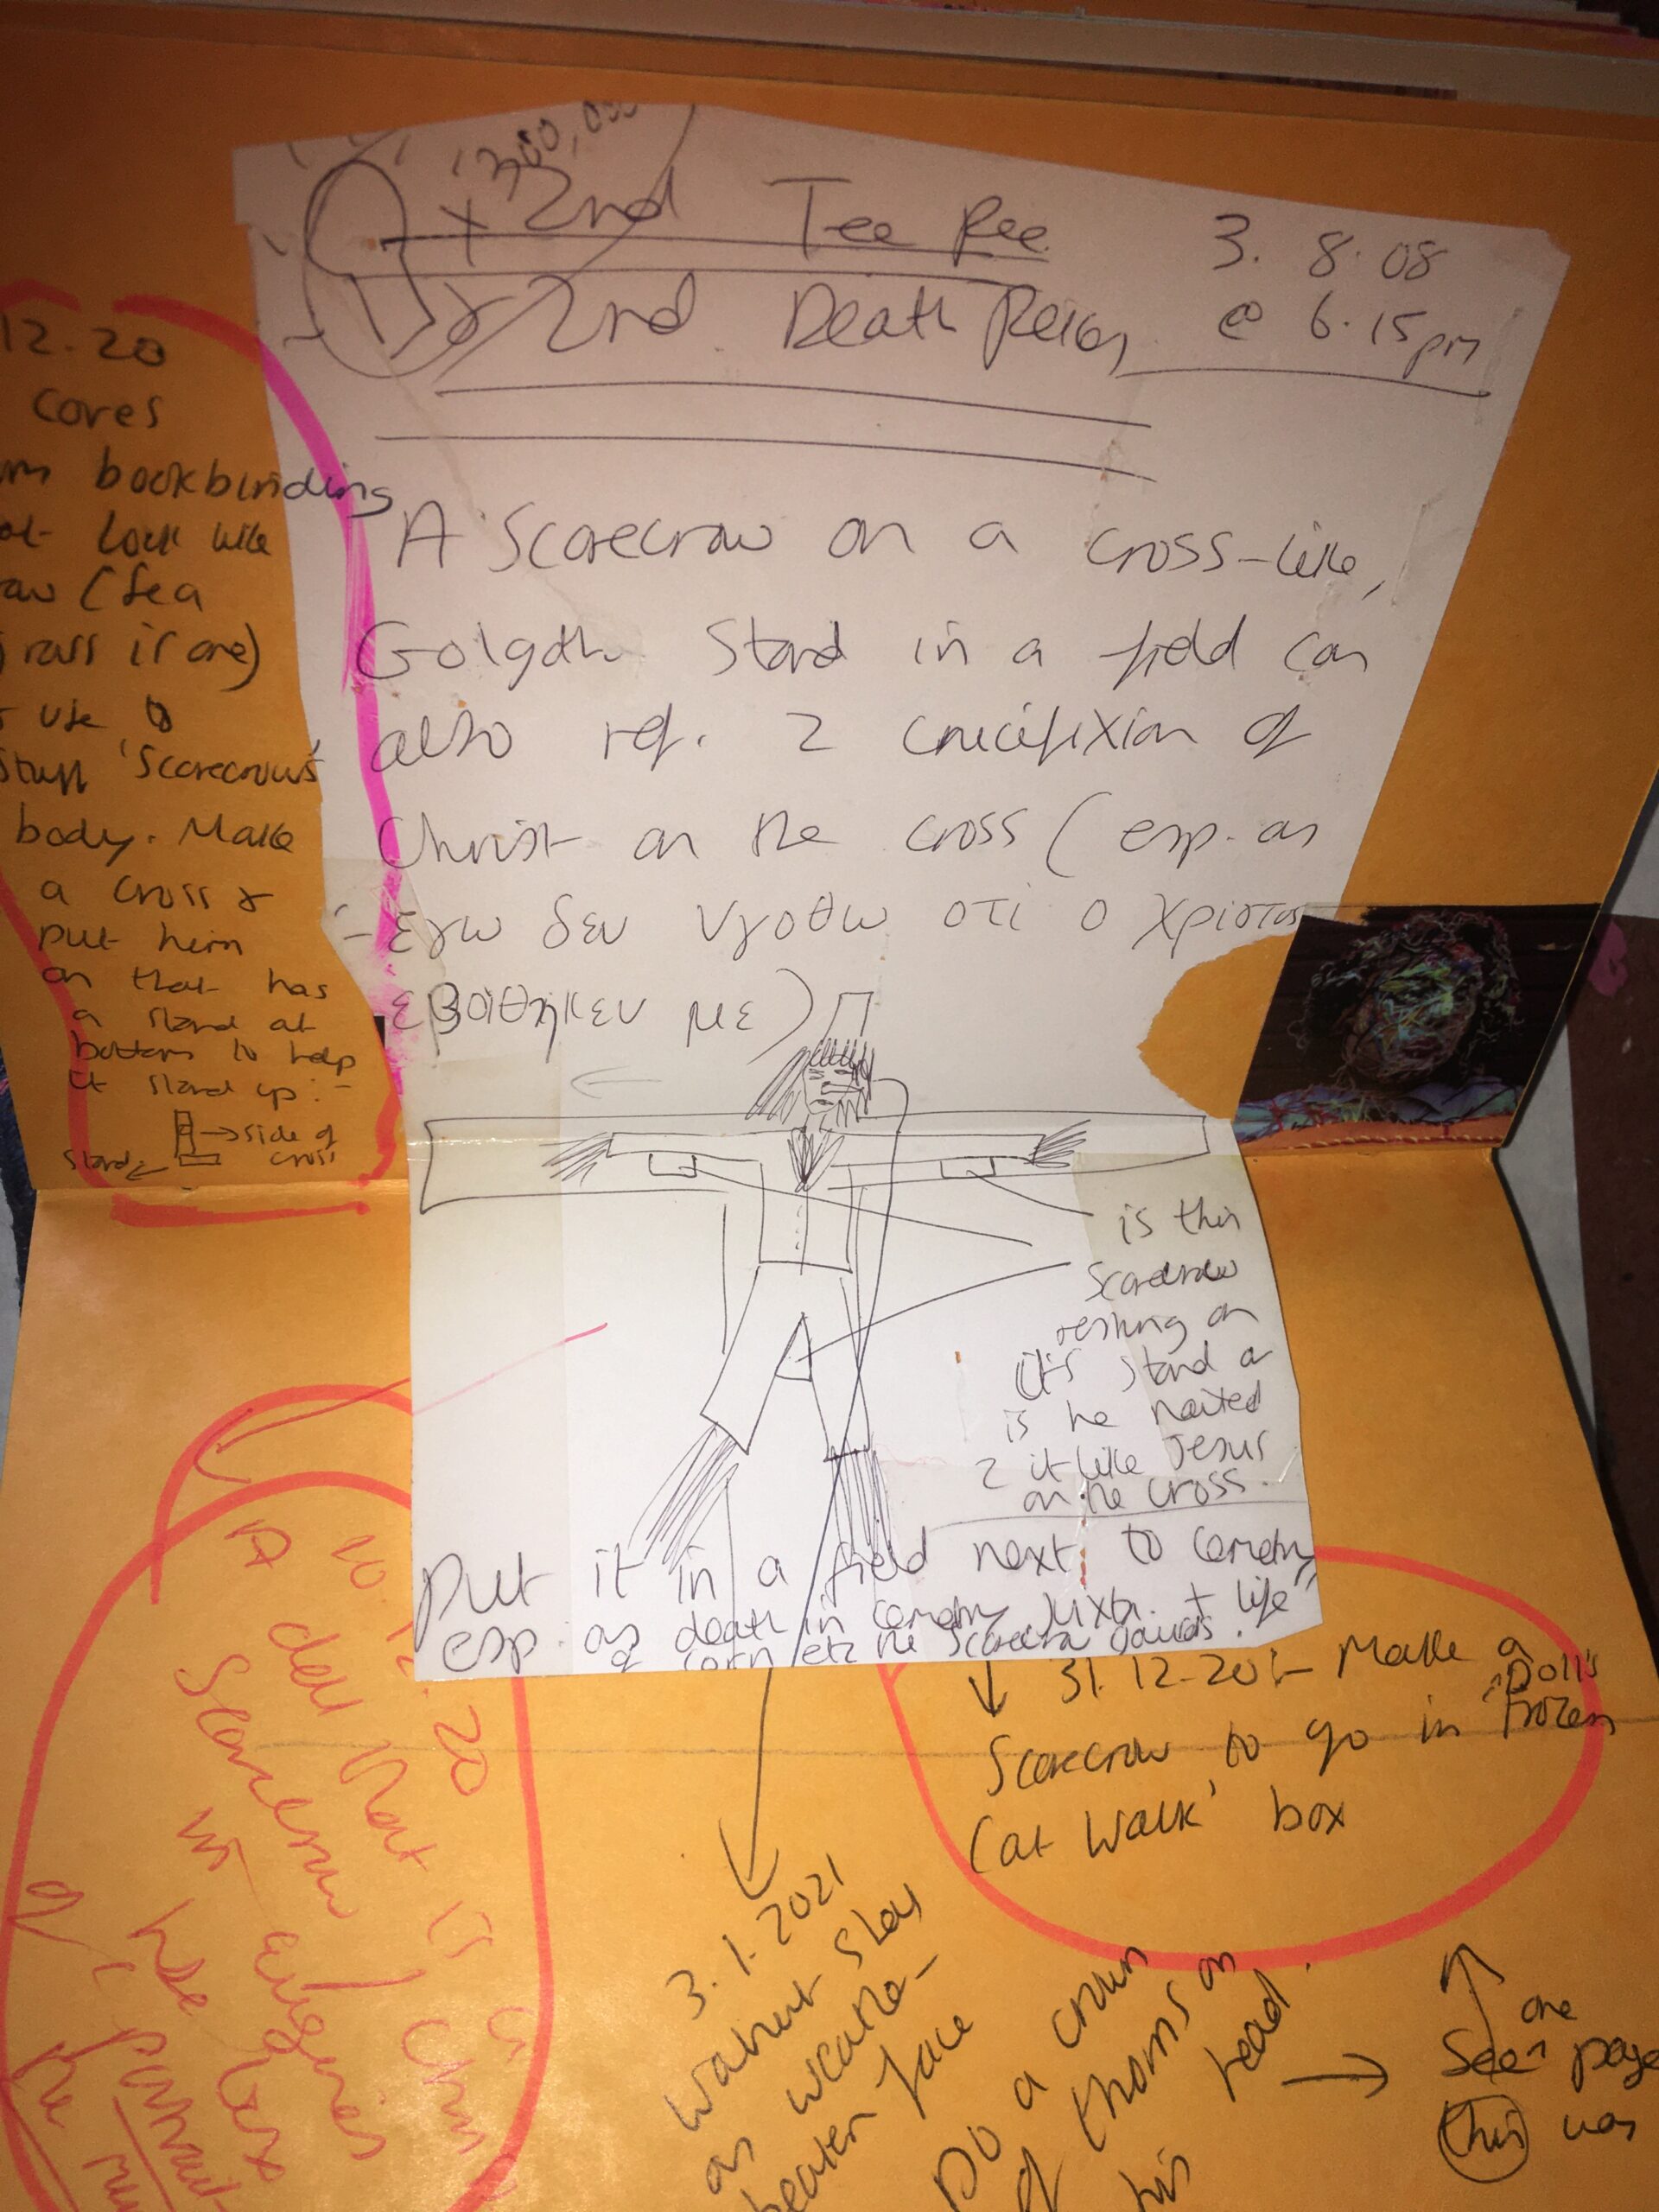 300,000
x 2nd Tee Pee 3. 8. 08
& 2nd Death Reign @ 6.15pm
A Scarecrow on a cross-like,
Golgoth Stand in a field can
also ref. 2 crucifixion of
Christ on the cross (esp. as
εγω δεν νγοθω οτι ο Χριστος
εβοιθηκεν με)
is this
Scarecrow
resting on
it's stand or
is he nailed
2 it like Jesus
on the cross.
Put it in a field next to cemetry
esp. as death in cemetry juxta. + life
of corn etc the scarecrow guards.
12.20
cores
bookbinding
look like
(sea
grass is one)
use to
stuff 'scarecrows'
body. Make
a cross &
put him
on that has
a stand at
bottom to help
it stand up:-
side of
cross
stand
10.12.20
A doll that is a
Scarecrow
in
his
of
the
31.12.20:- Make a
Doll's
Scarecrow to go in 'Frozen
Cat Walk' box
3.1.2021
Walnut Shell
as weathe-
beaten face
Do a crown
of thorns on
his head.
one
See page
this way